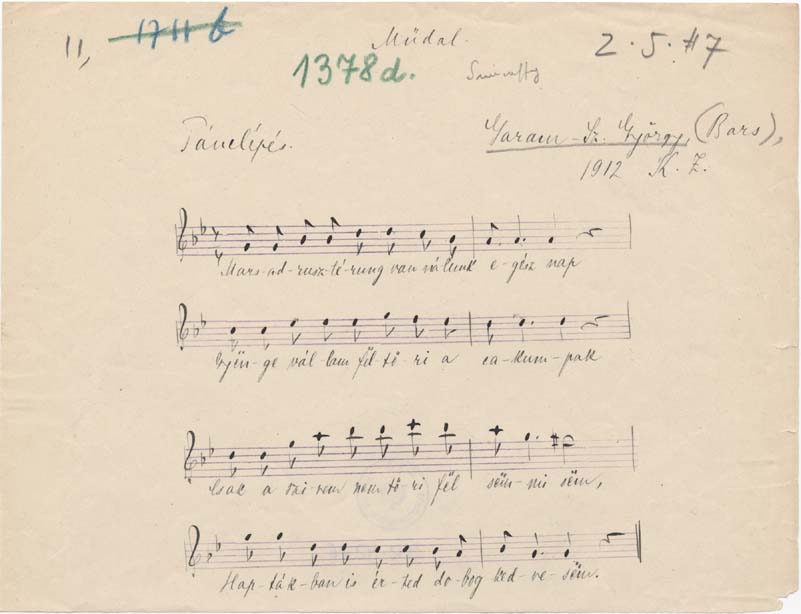 11, 1711 b Műdal. 2.5.#7
1378d.
Tánclépés. Garam-Sz. György, (Bars),
1912 K. Z.
Mars-ad-rusz-té-rung van nálunk e-gész nap
Gyön-ge vál-lam föl-tö-ri a ca-kum-pak
Csak a szí-vem nem tö-ri föl sëm-mi sëm,
Hap-ták-ban is ér-ted do-bog ked-ve-sëm.